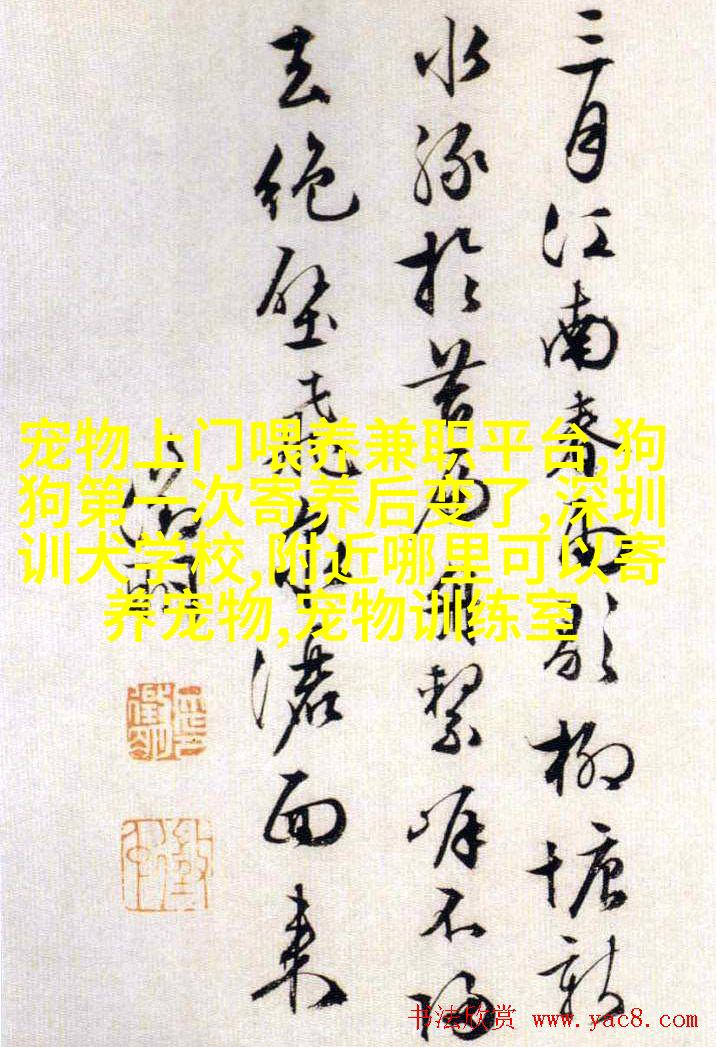 三月江南春雨歇柳塘新
水綠於苔扁舟繫岸不
去絕壁飛泉灑面来
宠物上门喂养兼职平台,狗
狗第一次寄养后变了,深圳
训犬学校,附近哪里可以寄
养宠物,宠物训练室
书法欣赏 www.yac8.com